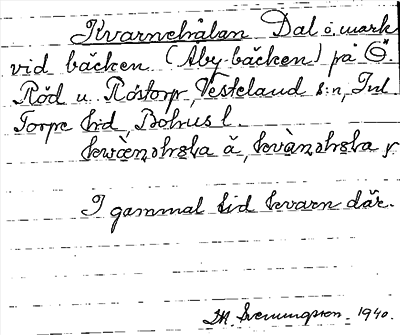 Kvarnehålan Dal o. mark
vid bäcken (Åbybäcken) på Ö.
Röd u. Röstorp, Vesteland s:n, Inl.
Torpe hd, Bohusl.
å,
I gammal tid kvarn där.
Svenningson. 1940.